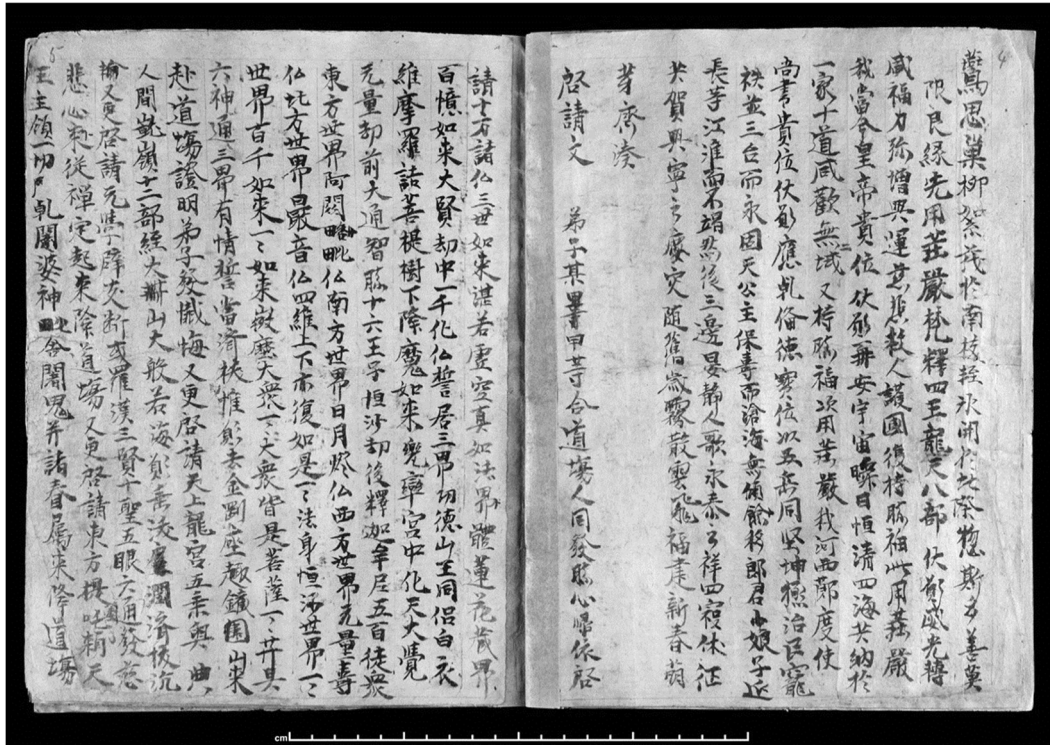 4
鸎思巢柳絮茂於南枝輕氷開於北岸惣斯多善莫
限良緣先用莊嚴梵釋四王龍天八部伏願威光轉
盛福力弥增興運慈悲救人護國復持勝福此用莊嚴
我當今皇帝貴位伏願再安宇宙聯日恒清四海共納於
一家十道咸歡無二域又持勝福次用莊嚴我河西節度使
尚書貴位伏願應乹俻德寶位以五岳同堅坤極治民寵
袟並三台而永固天公主保壽而滄海無傾郎君小娘子延
長等江淮而不竭然後三邊晏靜人歌永泰之祥四寇休征
共賀興寧之慶灾隨舊歲霧散雲飛福建新春萠
芽齊湊
啓請文 弟子某甲等合道塲人同發勝心歸依啓
5
請十方諸仏三世如来湛若虚空真如法界體蓮花藏界
百憶如来大賢劫中一千化仏誓居三界功德山王同侣白衣
維摩羅詰菩提樹下降魔如来兜率宮中化天大覺
无量劫前大通智勝十六王子恒沙劫後釋迦牟尼五百徒衆
東方世界阿閦毗仏南方世界日月燈仏西方世界无量壽
仏北方世界最音仏四維上下亦復如是是法身恒沙世界一一
世界百千如来一一如来微塵大衆一一大衆皆是菩薩一一菩具
六神通三界有情誓當濟拔惟願去金剛座趣鐵圍山来
赴道塲證明弟子發懺悔又更啓請天上龍宮五乘奥典
人間鷲嶺十二部經大般若海願垂濟拔沉
輪又更啓請无學辟支斷或羅漢三賢十聖五眼六通發慈
悲心従禅定起来降道塲又更啓請東方提頭頼天
王主領一切乹闥婆神毗舍闍鬼并諸眷屬来降道塲
cm